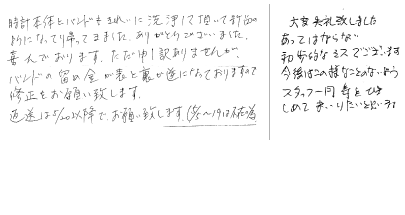 時計本体とバンドもきれいに洗浄して頂いて新品の
ようになって帰ってきました。ありがとうございました。
喜んでおります。ただ申し訳ありませんが、
バンドの留め金が表と裏が逆になっておりますので
修正をお願い致します。
返送は5/20以降で、お願い致します。(5/5〜19は不在の為
大変失礼致しました
あってはならない
初歩的なミスでございます
今後はこの様なことのないよう
スタッフ一同 気を引き
しめてまいりたいと思いま